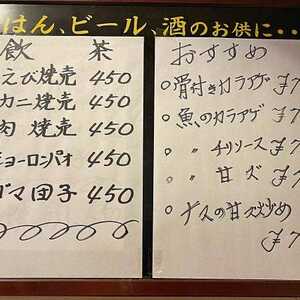 はん、ビール、酒のお供に・・
飲 茶
えび焼売 450
カニ焼売 450
肉 焼売 450
ショーロンパオ 450
ゴマ団子 450
おすすめ
○骨付きカラアゲ ¥7
○魚のカラアゲ ¥7
○ 〃 チリソース ¥7
〃 甘ズ ¥7
○ナスの甘ズ炒め
¥7